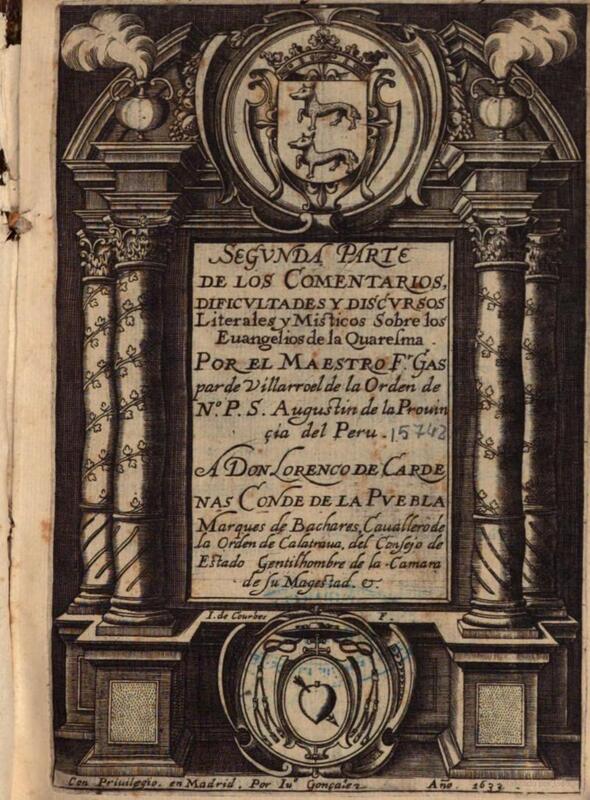 SEGVNDA PARTE
DE LOS COMENTARIOS,
DIFICVLTADES Y DISCVRSOS
Literales y Misticos Sobre los
Euangelios de la Quaresma.
POR EL MAESTRO Fr. GAS
par de Villarroel de la Orden de
Nº. P. S. Augustin de la Prouin
çia del Peru. 15748
A DON LORENCO DE CARDE
NAS CONDE DE LA PVEBLA
Marques de Bachares, Cauallero de
la Orden de Calatraua, del Consejo de
Estado Gentilhombre de la Camara
de su Magestad. &.
I. de Courbes F.
Con Priuilegio. en Madrid. Por Iuº Gonçalez Año. 1633.